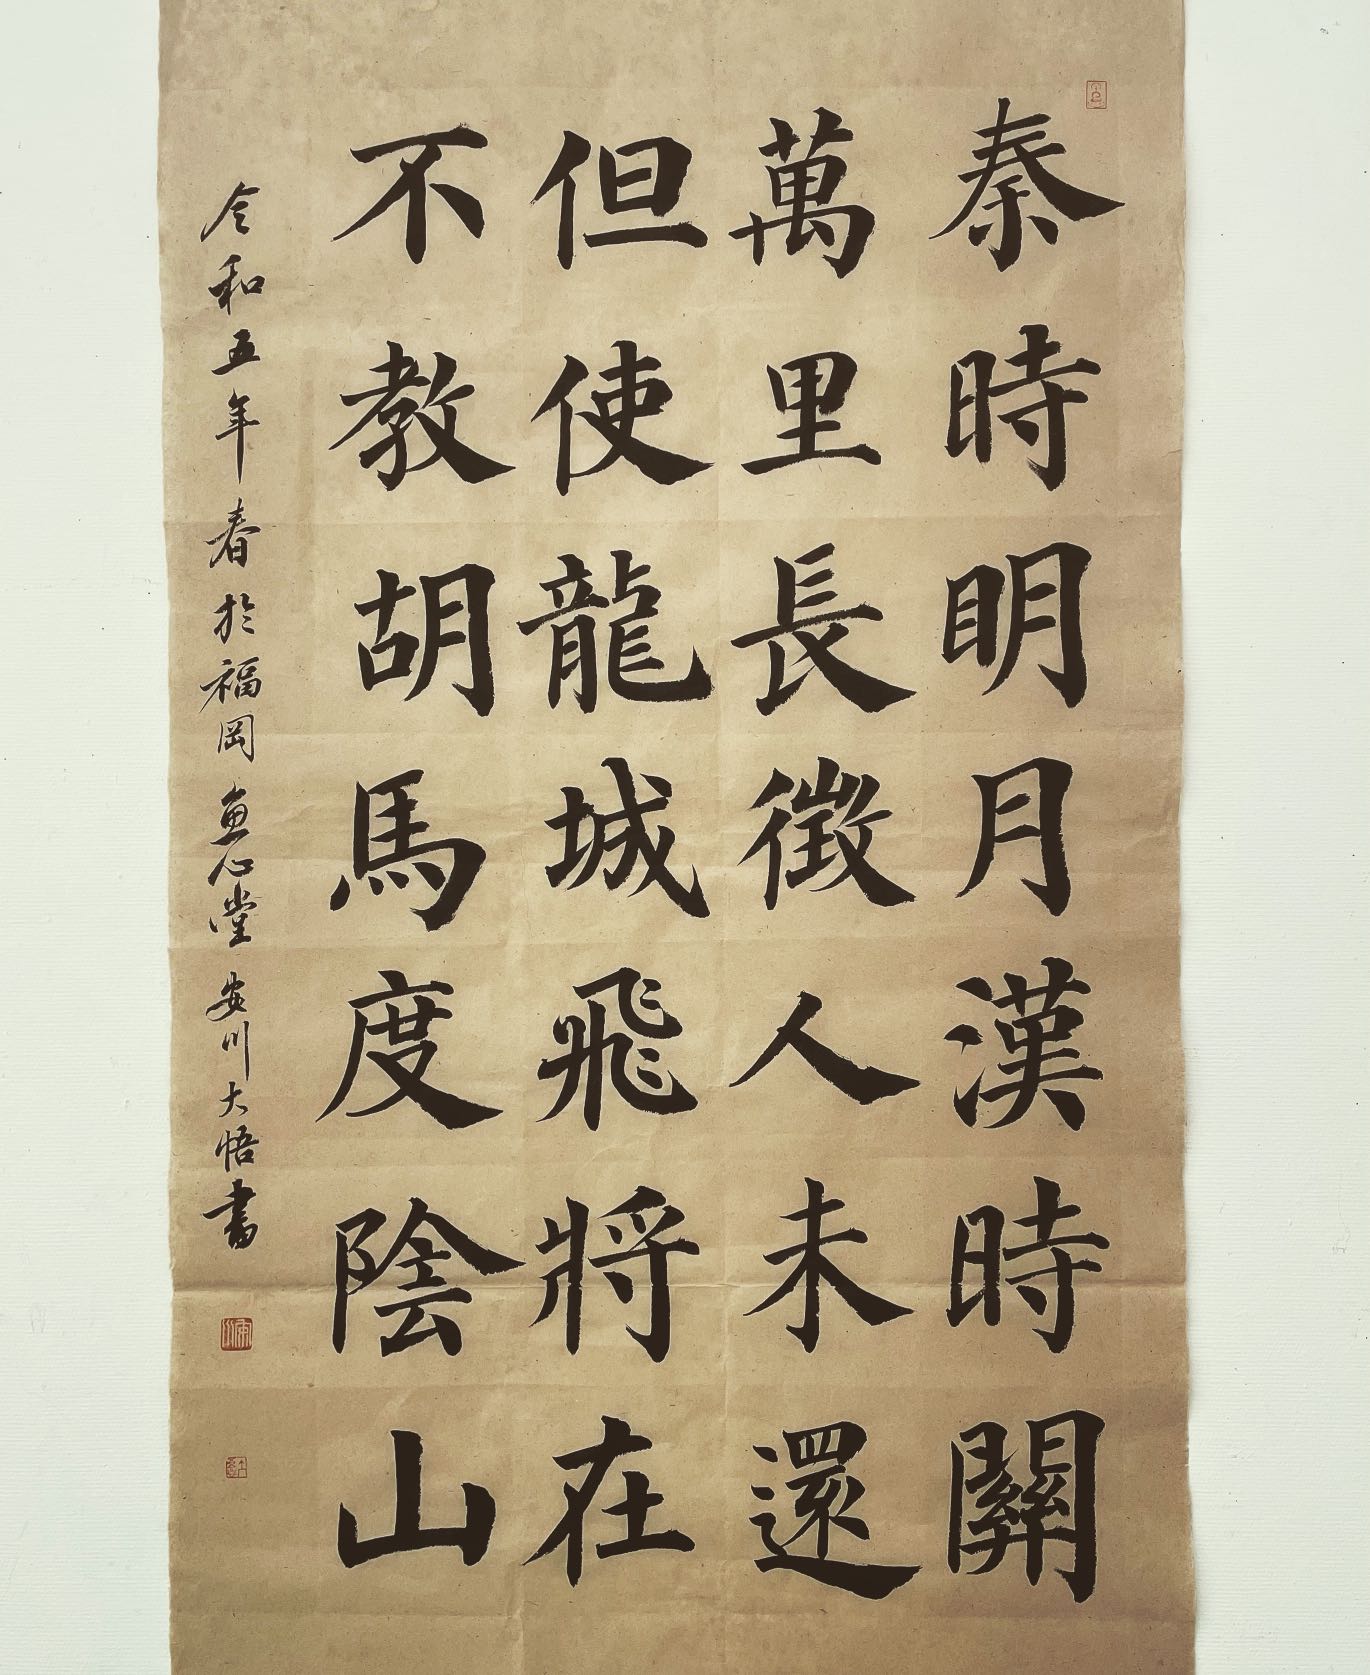 秦時明月漢時關
萬里長徴人未還
但使龍城飛將在
不教胡馬度陰山
令和五年春於福岡魚心堂安川大悟書